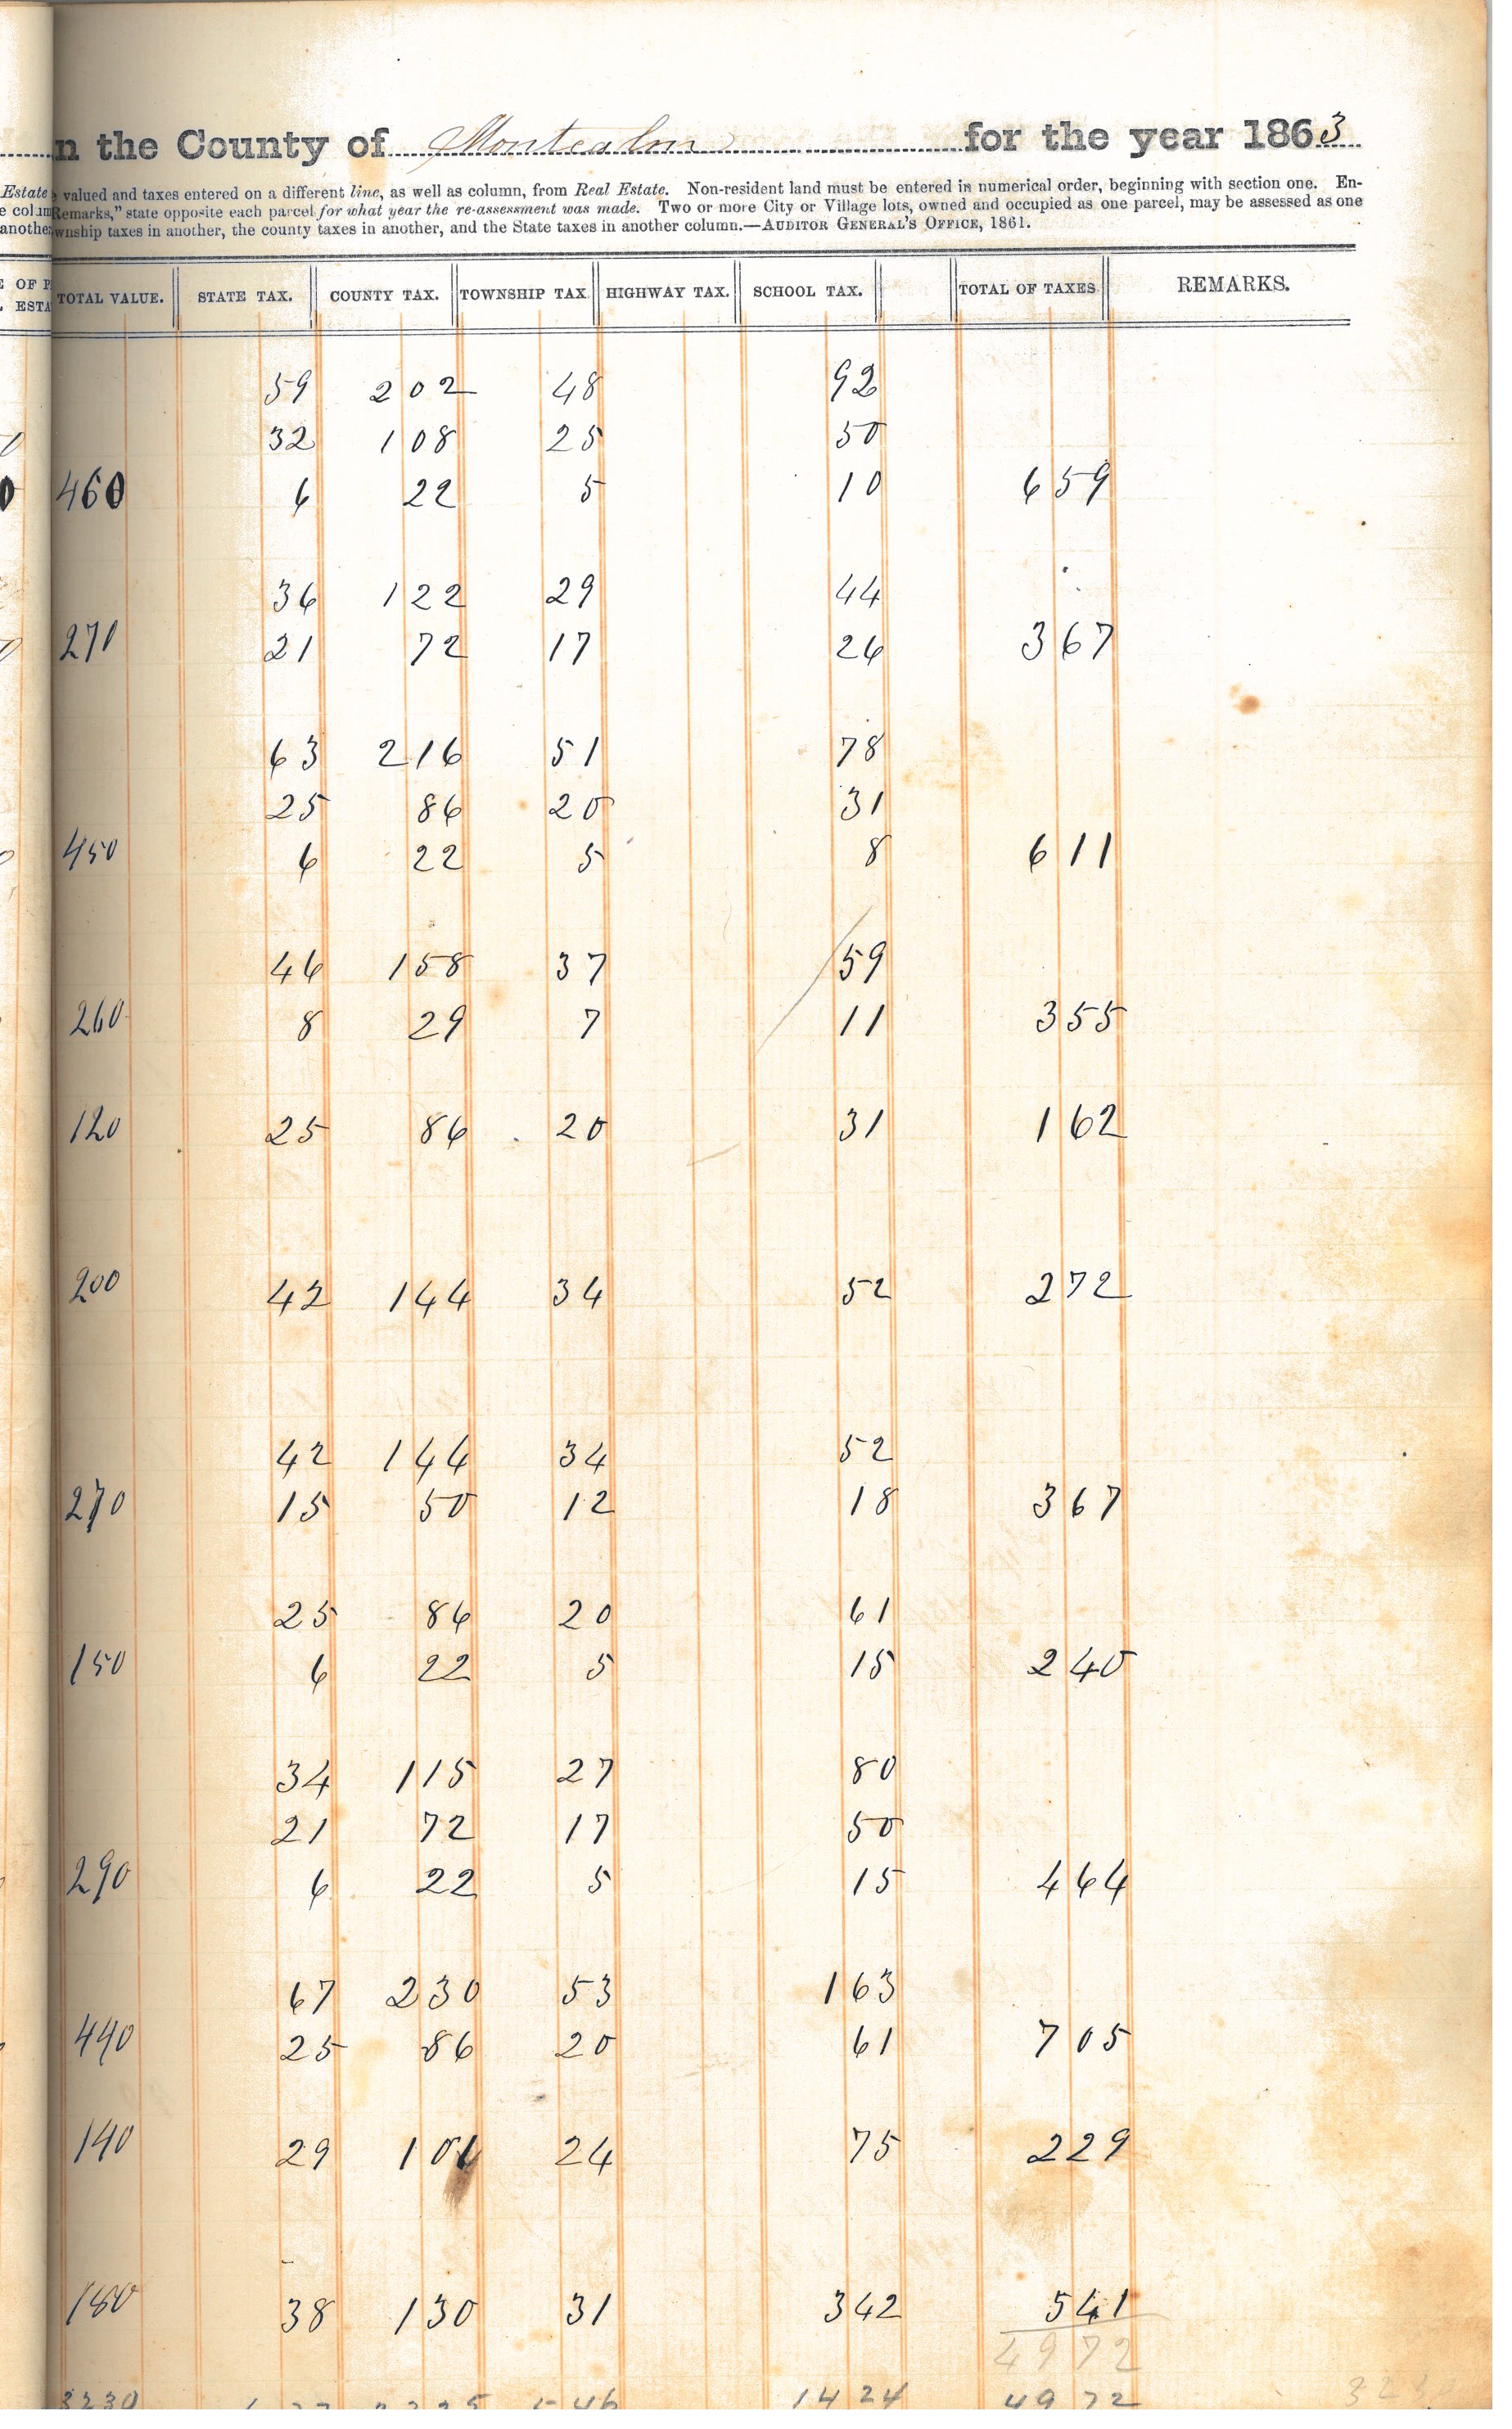 n the County of Montcalm for the year 1863
Estate valued and taxes entered on a different line, as well as column, from Real Estate. Non-resident land must be entered in numerical order, beginning with section one. En-
Remarks," state opposite each parcel for what year the re-assessment was made. Two or more City or Village lots, owned and occupied as one parcel, may be assessed as one
wnship taxes in another, the county taxes in another, and the State taxes in another column.—AUDITOR GENERAL'S OFFICE, 1861.
TOTAL VALUE. STATE TAX. COUNTY TAX. TOWNSHIP TAX HIGHWAY TAX. SCHOOL TAX. TOTAL OF TAXES REMARKS.
59 202 48 92
32 108 25 50
460 6 22 5 10 659
36 122 29 44
270 21 72 17 26 367
63 216 51 78
25 86 20 31
450 6 22 5 8 611
46 158 37 59
260 8 29 7 11 355
120 25 86 20 31 162
200 42 144 34 52 272
42 144 34 52
270 15 50 12 18 367
25 86 20 61
150 6 22 5 15 240
34 115 27 80
21 72 17 50
290 6 22 5 15 464
67 230 53 163
440 25 86 20 61 705
140 29 101 24 75 229
180 38 130 31 342 541
4972
3230 1424 4972